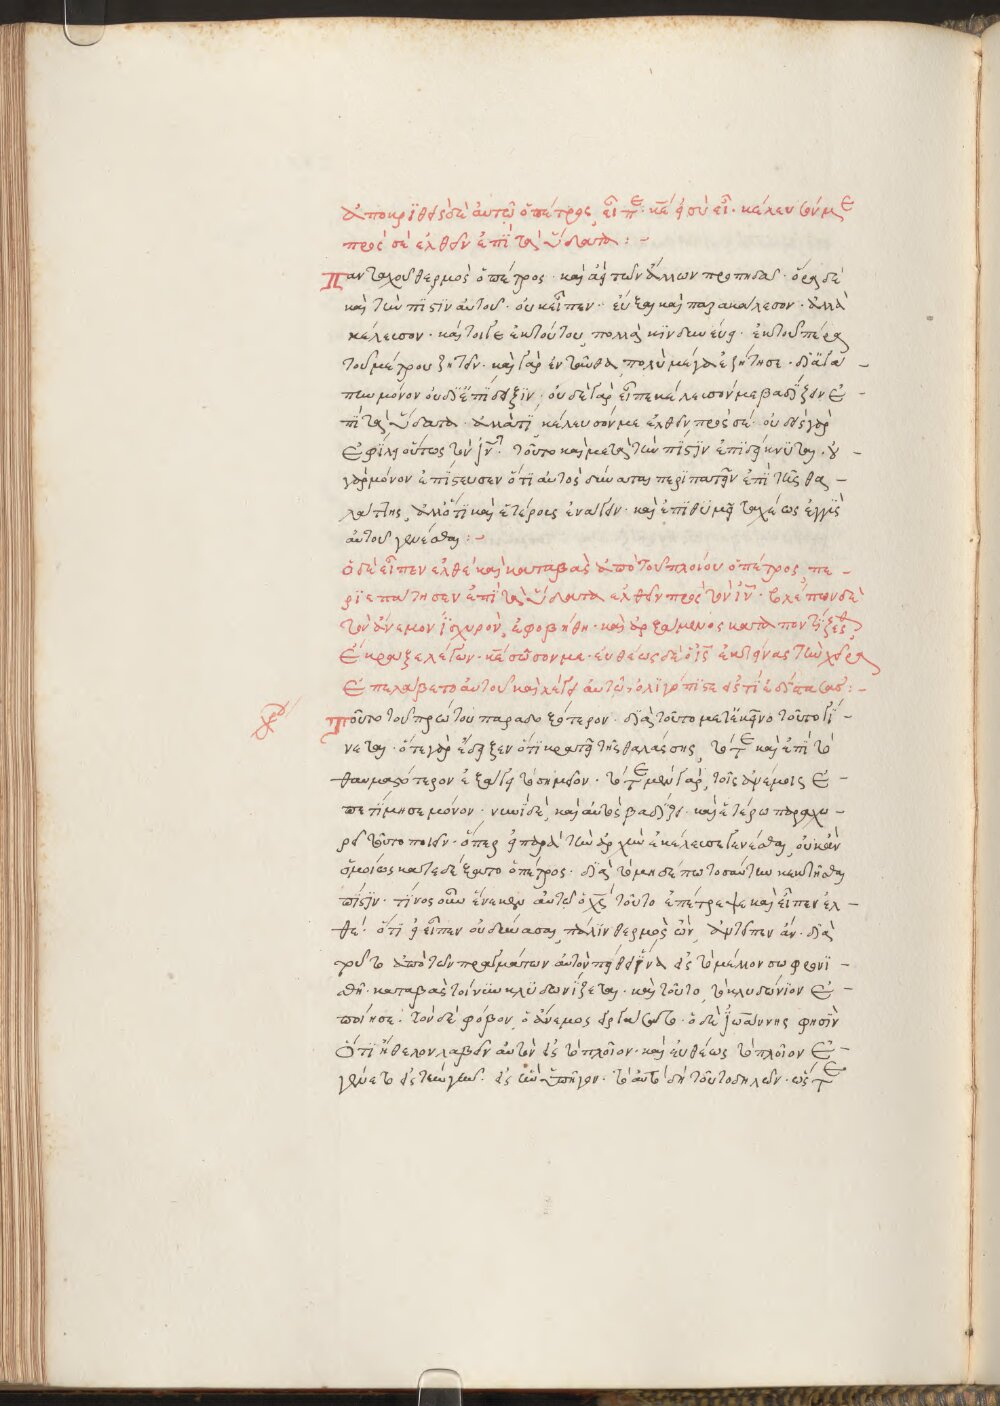 ἀποκριθεὶς δὲ αὐτῶ ὁ πέτρος, εἶπε· κ̅ε εἰ σὺ εἶ· κέλευσόν με
πρὸς σὲ ἐλθεῖν ἐπὶ τὰ ὕδατα :-
Πανταχοῦ θερμὸς ὁ πέτρος· καὶ ἀεὶ τῶν ἄλλων προπηδᾶ· ὅρα δὲ
καὶ τὴν πίστιν αὐτοῦ· οὐκ εἶπεν· εὖξαι καὶ παρακάλεσον· ἀλλὰ
κέλευσον· καίτοιγε ἐκ τούτου, πολλὰ κινδυνεύει· ἐκ τοῦ πέρα
τοῦ μέτρου ζητεῖν· καὶ γὰρ ἐνταῦθα πολὺ μέγα ἐζήτησε· διὰ ἀγά-
πην μόνον οὐ δι' ἐπίδειξιν· οὐδὲ γὰρ εἶπε κέλευσόν με βαδίζειν ἐ-
πὶ τὰ ὕδατα· ἀλλὰ τί κέλευσόν με ἐλθεῖν πρὸς σέ· οὐδεὶς γὰρ
ἐφίλει οὕτως τὸν ι̅ν· τοῦτο καὶ μετὰ τὴν πίστιν ἐπιδείκνυται· οὐ-
γὰρ μόνον ἐπίστευσεν ὅτι αὐτὸς δύναται περιπατεῖν ἐπὶ τῆς θα-
λάττης, ἀλλ' ὅτι καὶ ἑτέροις ἐναγεῖν· καὶ ἐπιθυμεῖ ταχέως ἐγγὺς
αὐτοῦ γενέσθαι :-
ὁ δὲ εἶπεν ἐλθέ καὶ καταβὰς ἀπὸ τοῦ πλοίου ὁ πέτρος, πε-
ριεπάτησεν ἐπὶ τὰ ὕδατα ἐλθεῖν πρὸς τὸν ι̅ν· βλέπων δὲ
τὸν ἄνεμον ἰσχυρὸν, ἐφοβήθη· καὶ ἀρξάμενος καταποντίζεσθαι,
ἔκραξε λέγων· κ̅ε σῶσον με· εὐθέως δὲ ὁ ι̅ς ἐκτείνας τὴν χεῖρα
ἐπελάβετο αὐτοῦ καὶ λέγει αὐτῶ· ὀλιγόπιστε εἰς τί ἐδίστασας :-
Τοῦτο τοῦ πρώτου παραδοξότερον· διὰ τοῦτο μετ' ἐκεῖνο τοῦτο γί-
νεται· ὅτε γὰρ ἔδειξεν ὅτι κρατεῖ τῆς θαλάσσης, τότε καὶ ἐπὶ τὸ
θαυμαστότερον ἐξάγει τὸ σημεῖον· τότε μὲν γὰρ, τοῖς ἀνέμοις ἐ-
πετίμησε μόνον· νυνὶ δὲ, καὶ αὐτὸς βαδίζει· καὶ ἑτέρω παραχω-
ρεῖ τοῦτο ποιεῖν· ὅπερ εἰ παρὰ τὴν ἀρχὴν ἐκέλευσε γενέσθαι, οὐκ ἂν
ὁμοίως κατεδέξατο ὁ πέτρος· διὰ τὸ μηδέπω τοσαύτην κεκτῆσθαι
πίστιν· τίνος οὖν ἕνεκεν αὐτῶ ὁ χ̅ς τοῦτο ἐπέτρεψε καὶ εἶπεν ἐλ-
θέ· ὅτι εἰ εἶπεν οὐ δύνασαι, πάλιν θερμὸς ὢν, ἀντεῖπεν ἄν· διὰ
τοῦτο ἀπὸ τῶν πραγμάτων αὐτὸν πείθει ἵνα εἰς τὸ μέλλον σωφρονι-
σθῆ· καταβὰς τοίνυν κλυδωνίζεται· καὶ τοῦτο, τὸ κλυδώνιον ἐ-
ποίησε· τὸν δὲ φόβον, ὁ ἄνεμος εἰργάσατο· ὁ δὲ ἰωάννης φησὶν
ὅτι ἤθελον λαβεῖν αὐτὸν εἰς τὸ πλοῖον· καὶ εὐθέως τὸ πλοῖον ἐ-
γένετο εἰς τὴν γῆν· εἰς ἣν ὑπῆγον· τὸ αὐτὸ δὴ τοῦτο δηλῶν· ὥστε